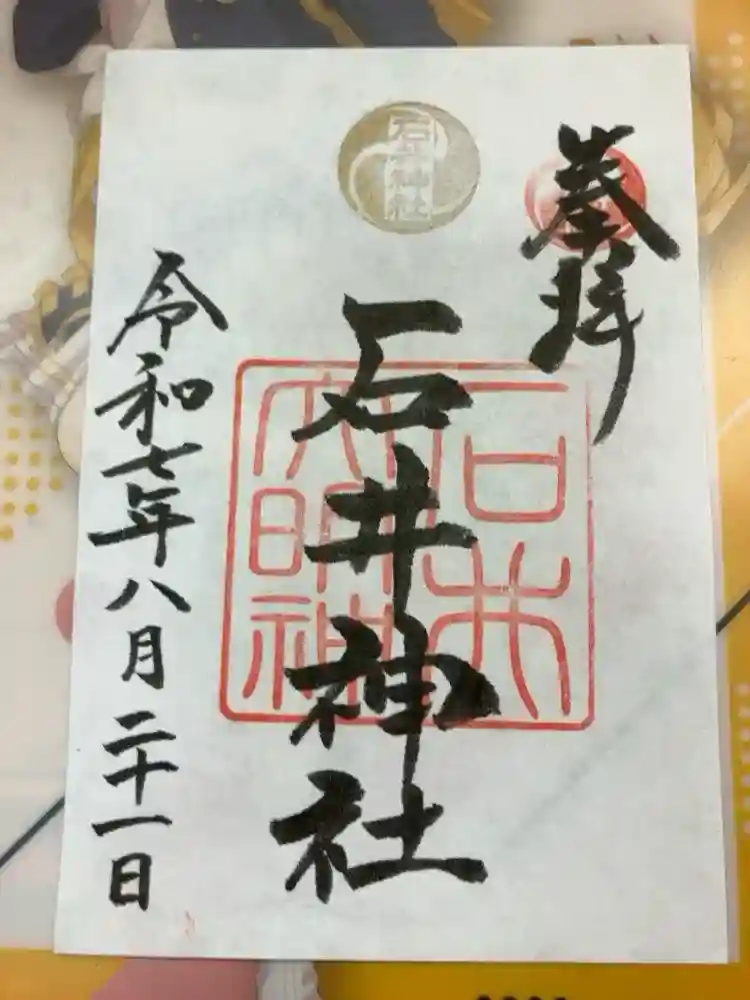 奉拝
石井神社
石井神社
石井大明神
令和七年八月二十一日